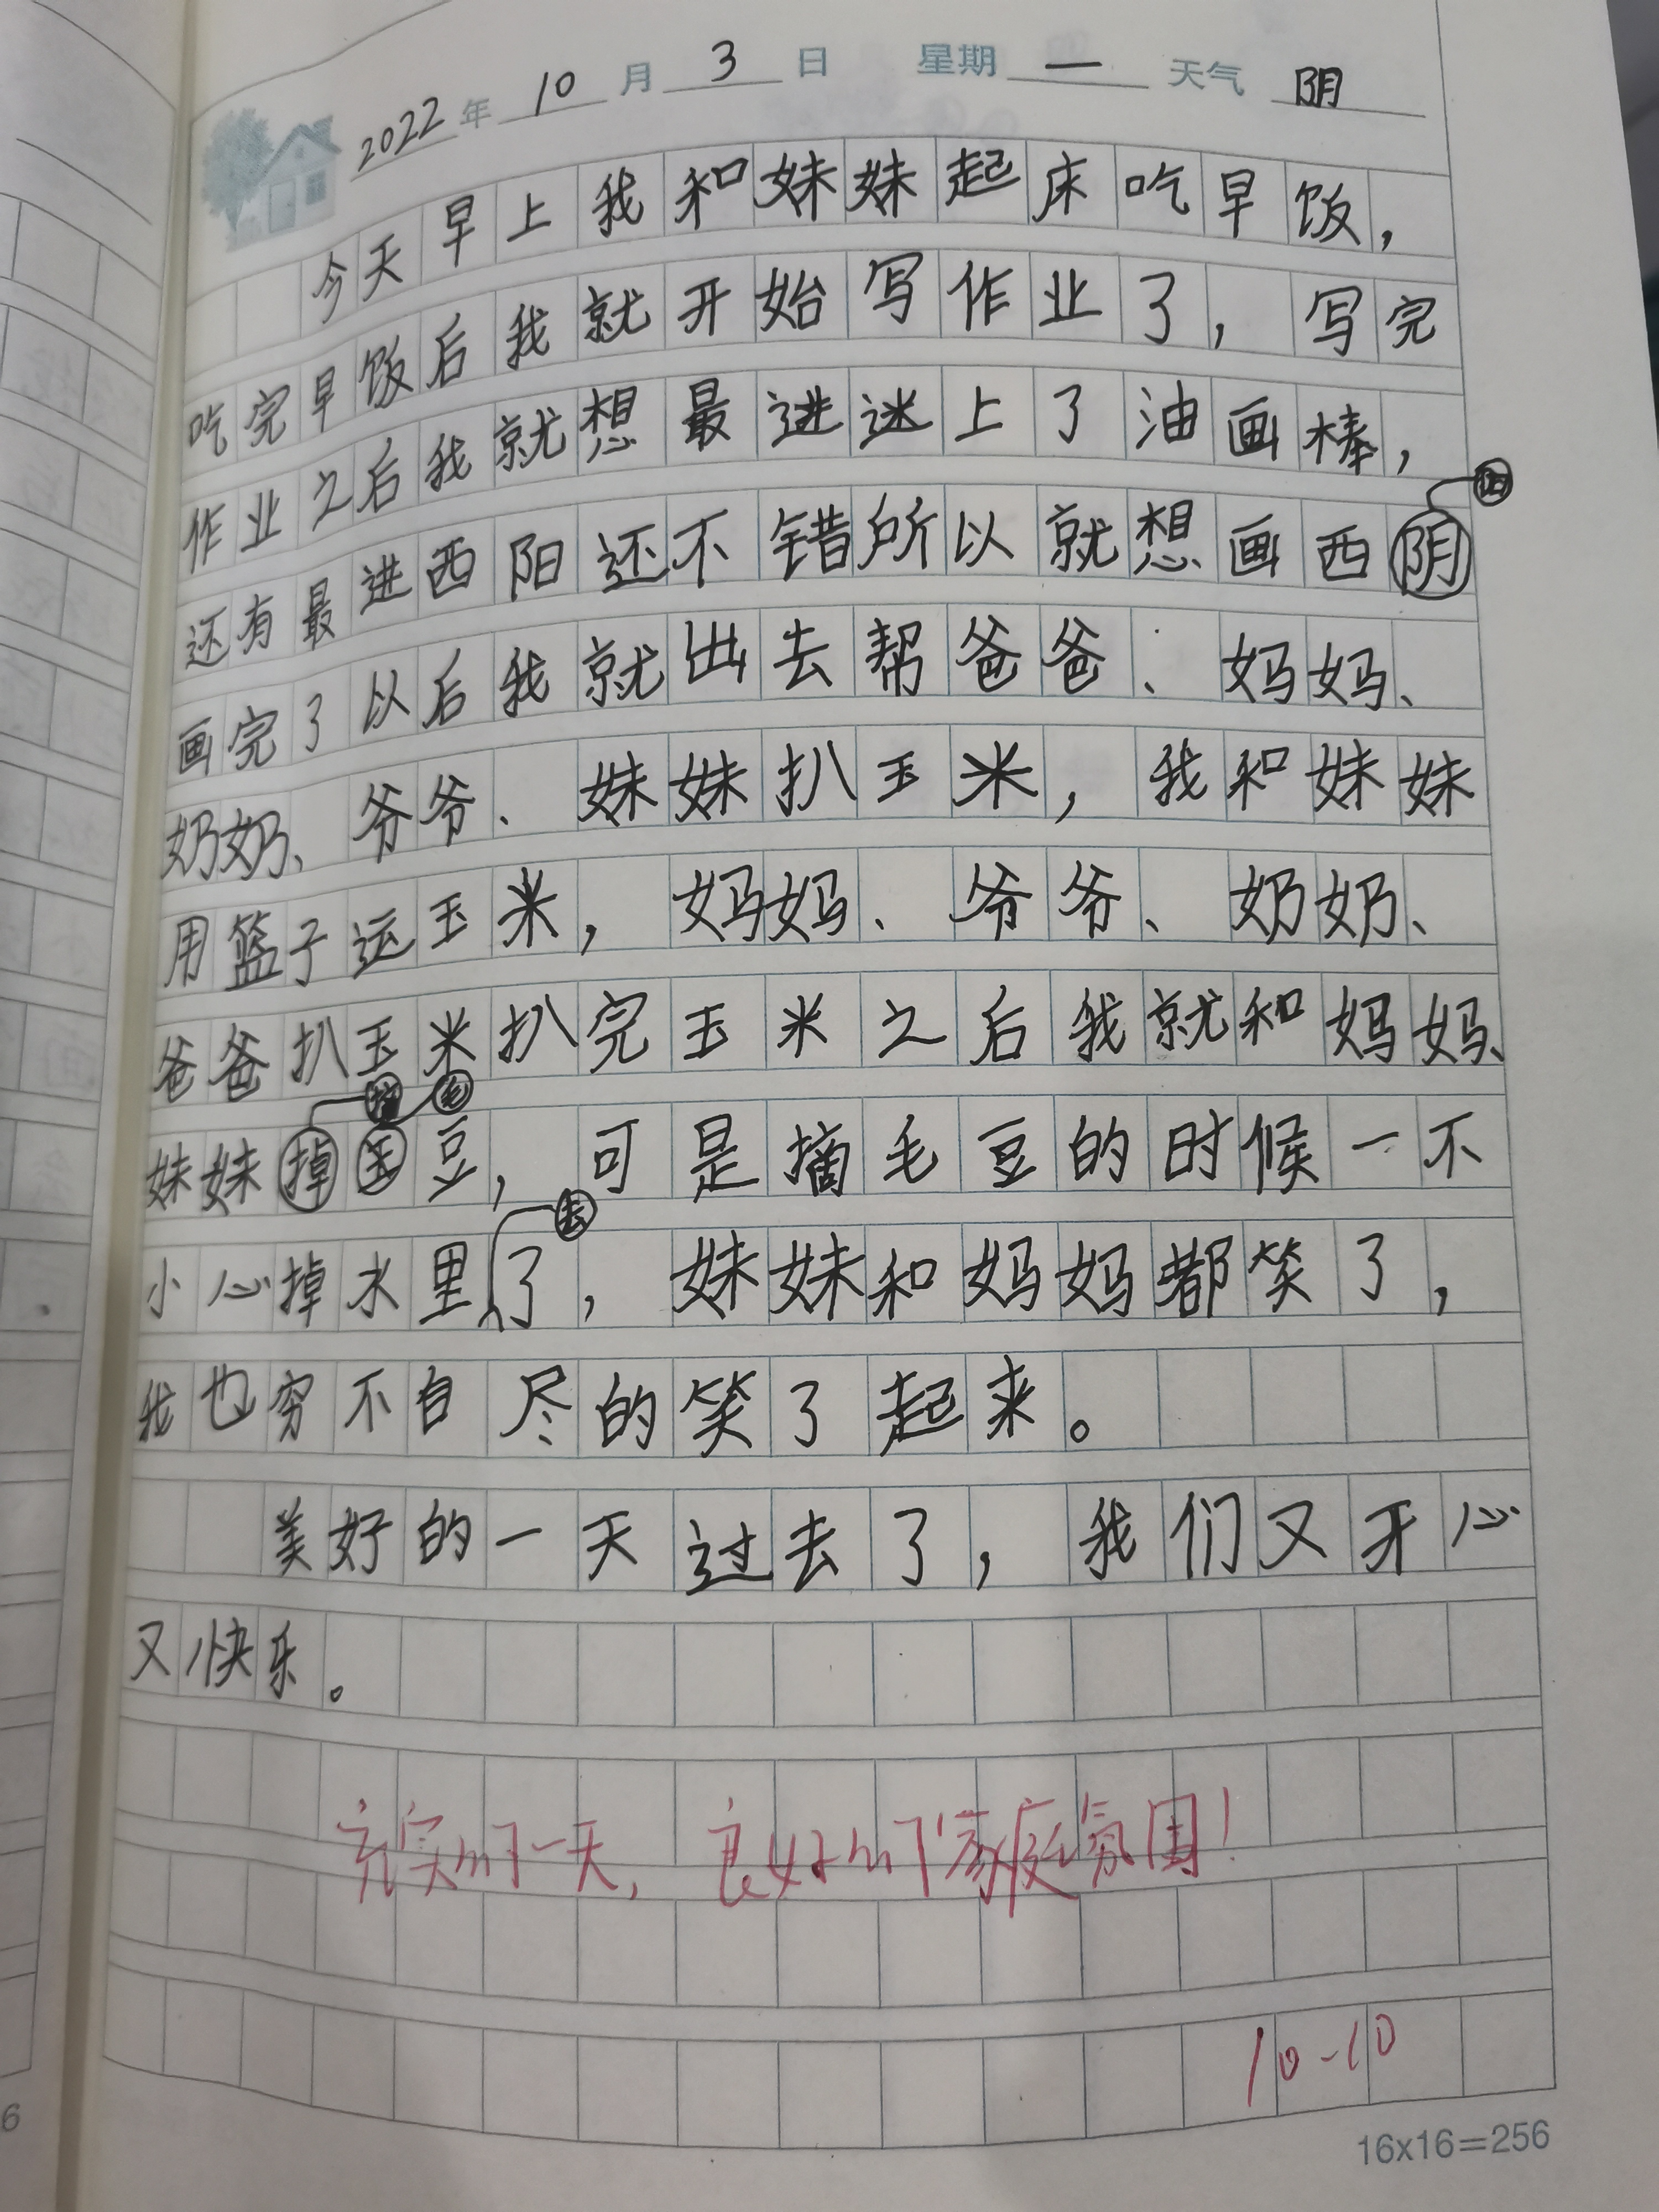 2022年10月3日 星期一 天气 阴
今天早上我和妹妹起床吃早饭，
吃完早饭后我就开始写作业了，写完
作业之后我就想最进迷上了油画棒，
还有最进西阳还不错所以就想画西阴
画完了以后我就出去帮爸爸、妈妈、
奶奶、爷爷、妹妹扒玉米，我和妹妹
用篮子运玉米，妈妈、爷爷、奶奶、
爸爸扒玉米扒完玉米之后我就和妈妈、
摘毛
妹妹掉玉豆，可是摘毛豆的时候一不
去
小心掉水里了，妹妹和妈妈都笑了，
我也穷不自尽的笑了起来。
美好的一天过去了，我们又开心
又快乐。
充实的一天，良好的家庭氛围！
10-10
16x16=256
6